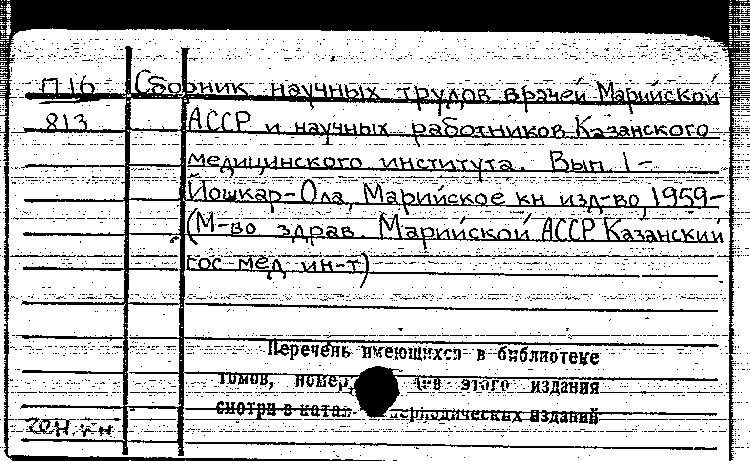 П16 Сборник научных трудов врачей Марийской
813 АССР и научных работников Казанского
медицинского института. Вып. 1-
Йошкар-Ола, Марийское кн изд-во, 1959-
(М-во здрав. Марийской АССР Казанский
гос мед ин-т)
Перечень имеющихся в библиотеке
томов, этого издания
смотри в периодических изданий